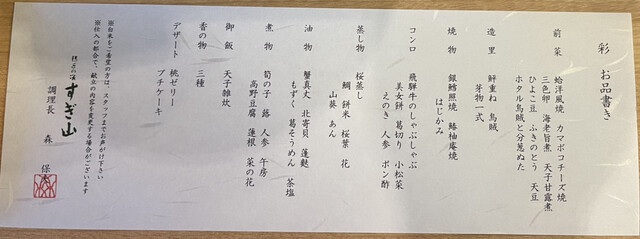 彩 お品書き
前菜 蛤洋風焼 カマボコチーズ焼
三色卵 海老旨煮 天子甘露煮
ひよこ豆 ふきのとう 天豆
ホタル烏賊と分葱ぬた
造里 鮮重ね 烏賊
芽物一式
焼物 銀鱈照焼 鰆柚庵焼
はじかみ
コンロ 飛騨牛のしゃぶしゃぶ
美女餅 葛切り 小松菜
えのき 人参 ポン酢
蒸し物 桜蒸し
鯛 餅米 桜葉 花
山葵 あん
油物 蟹真丈 北寄貝 蓮麩
もずく 葛そうめん 茶塩
煮物 筍の子 蕗 人参 午房
高野豆腐 蓮根 菜の花
御飯 天子雑炊
香の物 三種
デザート 桃ゼリー
プチケーキ
※白米をご希望の方は、スタッフまでお声がけ下さい
※仕入の都合で、献立の内容を変更する場合がございます
すぎ山
調理長 森 保